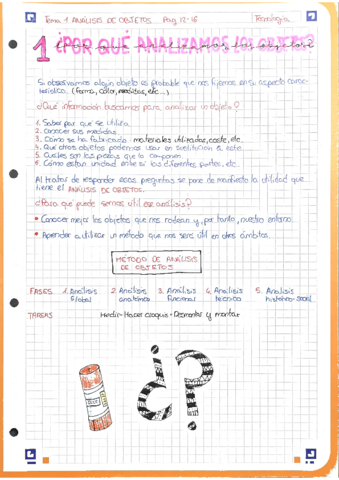 Tema 1 ANÁLISIS DE OBJETOS. Pág 12-16 Tecnología
1 ¿POR QUÉ ANALIZAMOS los objetos?
Si observamos algún objeto es probable que nos fijemos en su aspecto carac-
terístico. (Forma, color, medidas, etc...)
¿Qué información buscamos para analizar un objeto?
1. Saber por qué se utiliza
2. Conocer sus medidas
3. Cómo se ha fabricado - materiales utilizados, coste, etc.
4. Qué otros objetos podemos usar en sustitución a este
5. Cuáles son las piezas que lo componen
6. Cómo están unidad entre sí las diferentes partes, etc.
Al tratar de responder esas preguntas se pone de manifiesto la utilidad que
tiene el ANÁLISIS DE OBJETOS.
¿Para qué puede sernos útil ese análisis?
• Conocer mejor los objetos que nos rodean y, por tanto, nuestro entorno.
• Aprender a utilizar un método que nos será útil en otros ámbitos.
MÉTODO DE ANÁLISIS
DE OBJETOS
FASES 1. Análisis 2. Análisis 3. Análisis 4. Análisis 5. Análisis
global anatómico funcional técnico histórico-social
TAREAS Medir - Hacer croquis - Desmontar y montar
¿?